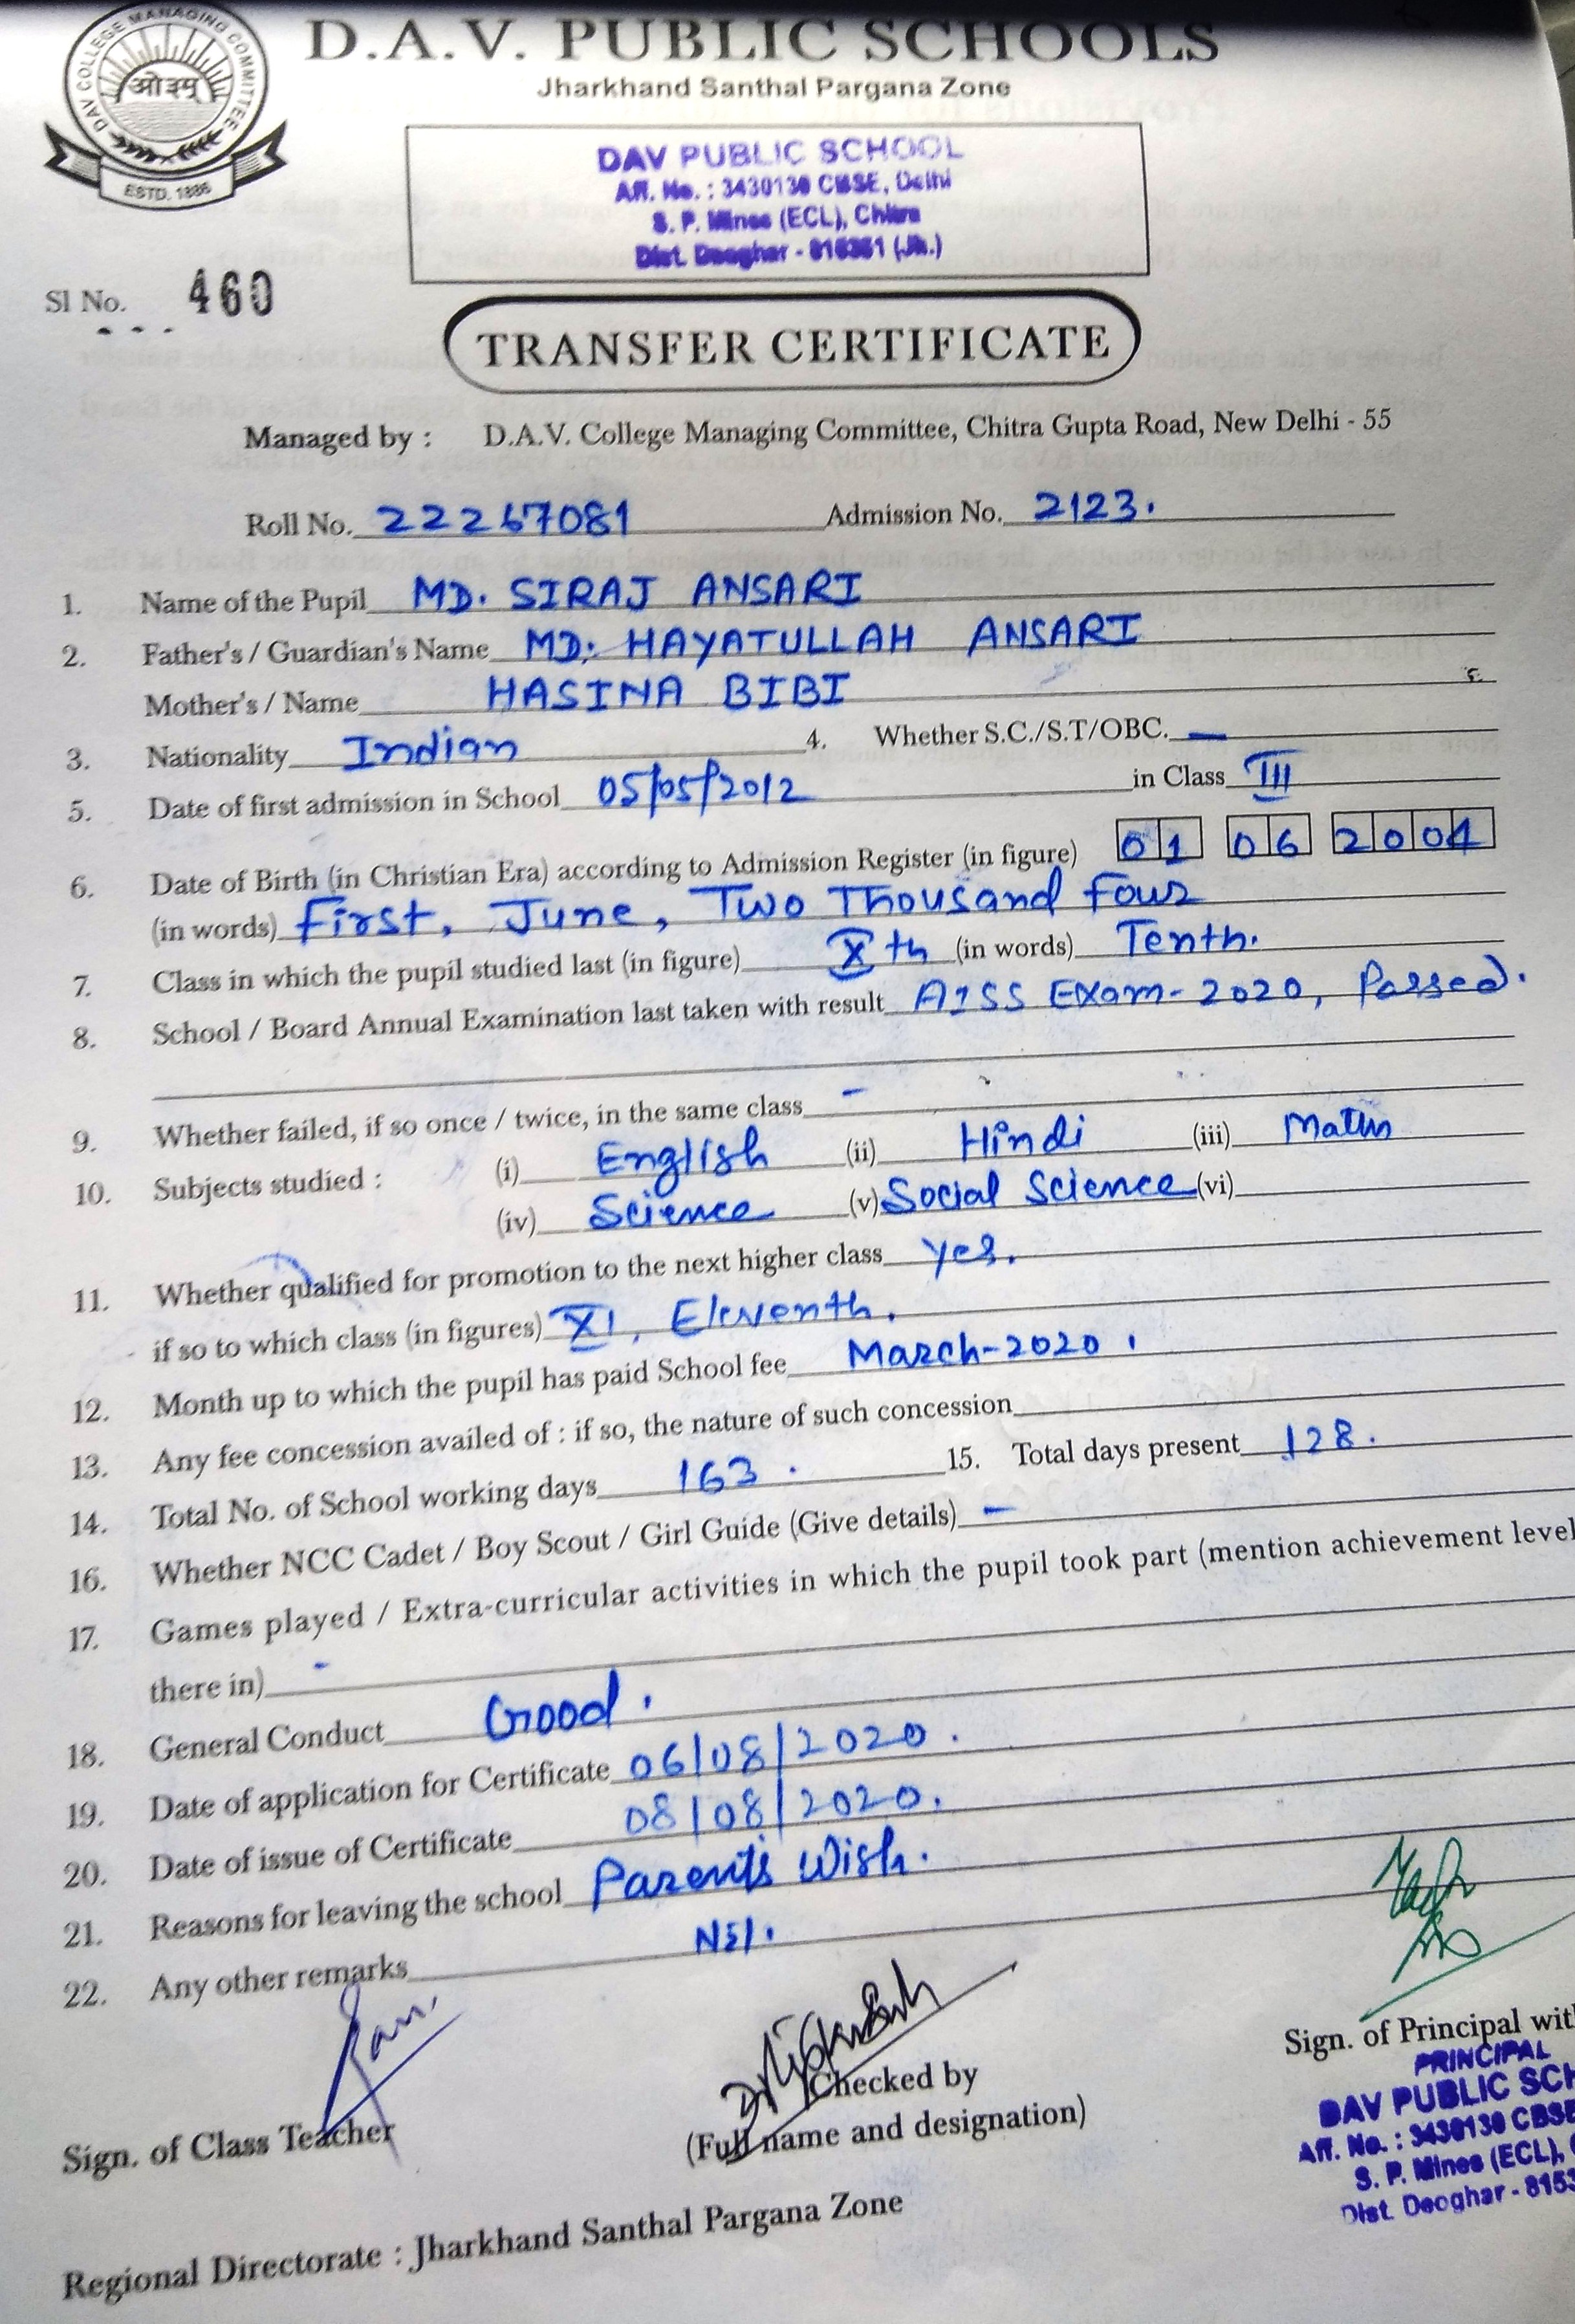 DAV COLLEGE MANAGING COMMITTEE
ओ३म्
ESTD. 1886
D.A.V. PUBLIC SCHOOLS
Jharkhand Santhal Pargana Zone
DAV PUBLIC SCHOOL
Aff. No. : 3430130 CBSE, Delhi
S. P. Mines (ECL), Chitra
Dist. Deoghar - 815351 (Jh.)
Sl No. 460
TRANSFER CERTIFICATE
Managed by : D.A.V. College Managing Committee, Chitra Gupta Road, New Delhi - 55
Roll No. 22267081 Admission No. 2123.
1. Name of the Pupil MD. SIRAJ ANSARI
2. Father's / Guardian's Name MD. HAYATULLAH ANSARI
Mother's / Name HASINA BIBI
3. Nationality Indian 4. Whether S.C./S.T/OBC. —
5. Date of first admission in School 05/05/2012 in Class III
6. Date of Birth (in Christian Era) according to Admission Register (in figure) 01 06 2004
(in words) First, June, Two Thousand Four
7. Class in which the pupil studied last (in figure) Xth (in words) Tenth.
8. School / Board Annual Examination last taken with result AISS Exam-2020, Passed.
9. Whether failed, if so once / twice, in the same class -
10. Subjects studied : (i) English (ii) Hindi (iii) Maths
(iv) Science (v) Social Science (vi)
11. Whether qualified for promotion to the next higher class Yes.
if so to which class (in figures) XI, Eleventh.
12. Month up to which the pupil has paid School fee March-2020.
13. Any fee concession availed of : if so, the nature of such concession
14. Total No. of School working days 163. 15. Total days present 128.
16. Whether NCC Cadet / Boy Scout / Girl Guide (Give details) -
17. Games played / Extra-curricular activities in which the pupil took part (mention achievement level
there in) -
18. General Conduct Good.
19. Date of application for Certificate 06/08/2020.
20. Date of issue of Certificate 08/08/2020.
21. Reasons for leaving the school Parent's Wish.
22. Any other remarks Nil.
Sign. of Class Teacher
Checked by
(Full name and designation)
Sign. of Principal wit
PRINCIPAL
DAV PUBLIC SCH
Aff. No. : 3430130 CBSE
S. P. Mines (ECL),
Dist. Deoghar - 8153
Regional Directorate : Jharkhand Santhal Pargana Zone